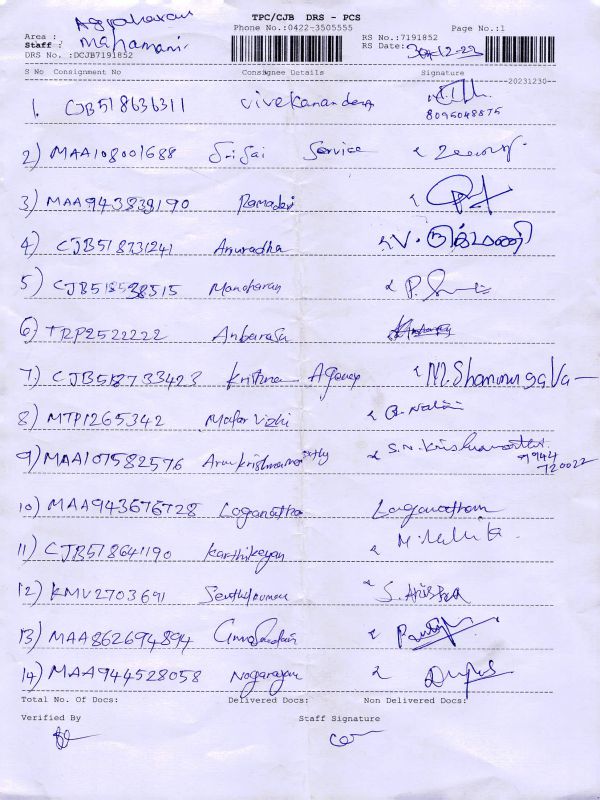 TPC/CJB DRS - PCS
Agraharam
Area :
Phone No.:0422-3505555
RS No.:7191852
Page No.:1
Staff : Mahamani
RS Date: 30-12-23
DRS No. :DCJB7191852
S No Consignment No Consignee Details Signature
20231230
1. CJB518636311 Vivekanandan
8095048875
2) MAA108001688 Sri Sai Service
3) MAA943839190 Ramadevi
4) CJB518731241 Anuradha V. ருக்மணி
5) CJB518538515 Manoharan
6) TRP2522222 Anbarasu
7) CJB518733423 Krishna Agency M. Shanmugava
8) MTP1265342 Malar Vizhi
9) MAA107582576 Arun krishnamoorthy S.N. Krishnamoorthi
7944
720022
10) MAA943676728 Loganathan Loganatham
11) CJB518641190 Karthikeyan
12) KMV2703691 Senthilkumar
13) MAA862694894
14) MAA944528058 Nagarajan
Total No. Of Docs: Delivered Docs: Non Delivered Docs:
Verified By Staff Signature